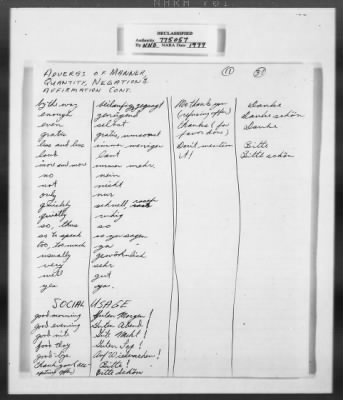 DECLASSIFIED
Authority 775057
By NND NARA Date 1977
ADVERBS OF MANNER,
QUANTITY, NEGATION &
AFFIRMATION CONT.
by the way
enough genügend
even selbst
gratis gratis, umsonst
less and less immer weniger
loud laut
more and more immer mehr
no nein
not nicht
only nur
quickly schnell, rasch
quietly ruhig
so, thus so
so to speak so zu sagen
too, too much zu
usually gewöhnlich
very sehr
well gut
yes ja
No thank you Danke
(refusing offer) Danke schön
Thanks (for Danke
favor done)
Don't mention Bitte
it! Bitte schön
SOCIAL USAGE
good morning Guten Morgen!
good evening Guten Abend!
good nite
good day Guten Tag!
good-bye Auf Wiedersehen!
thank you (acc- Bitte!
epting offer) Bitte Schön